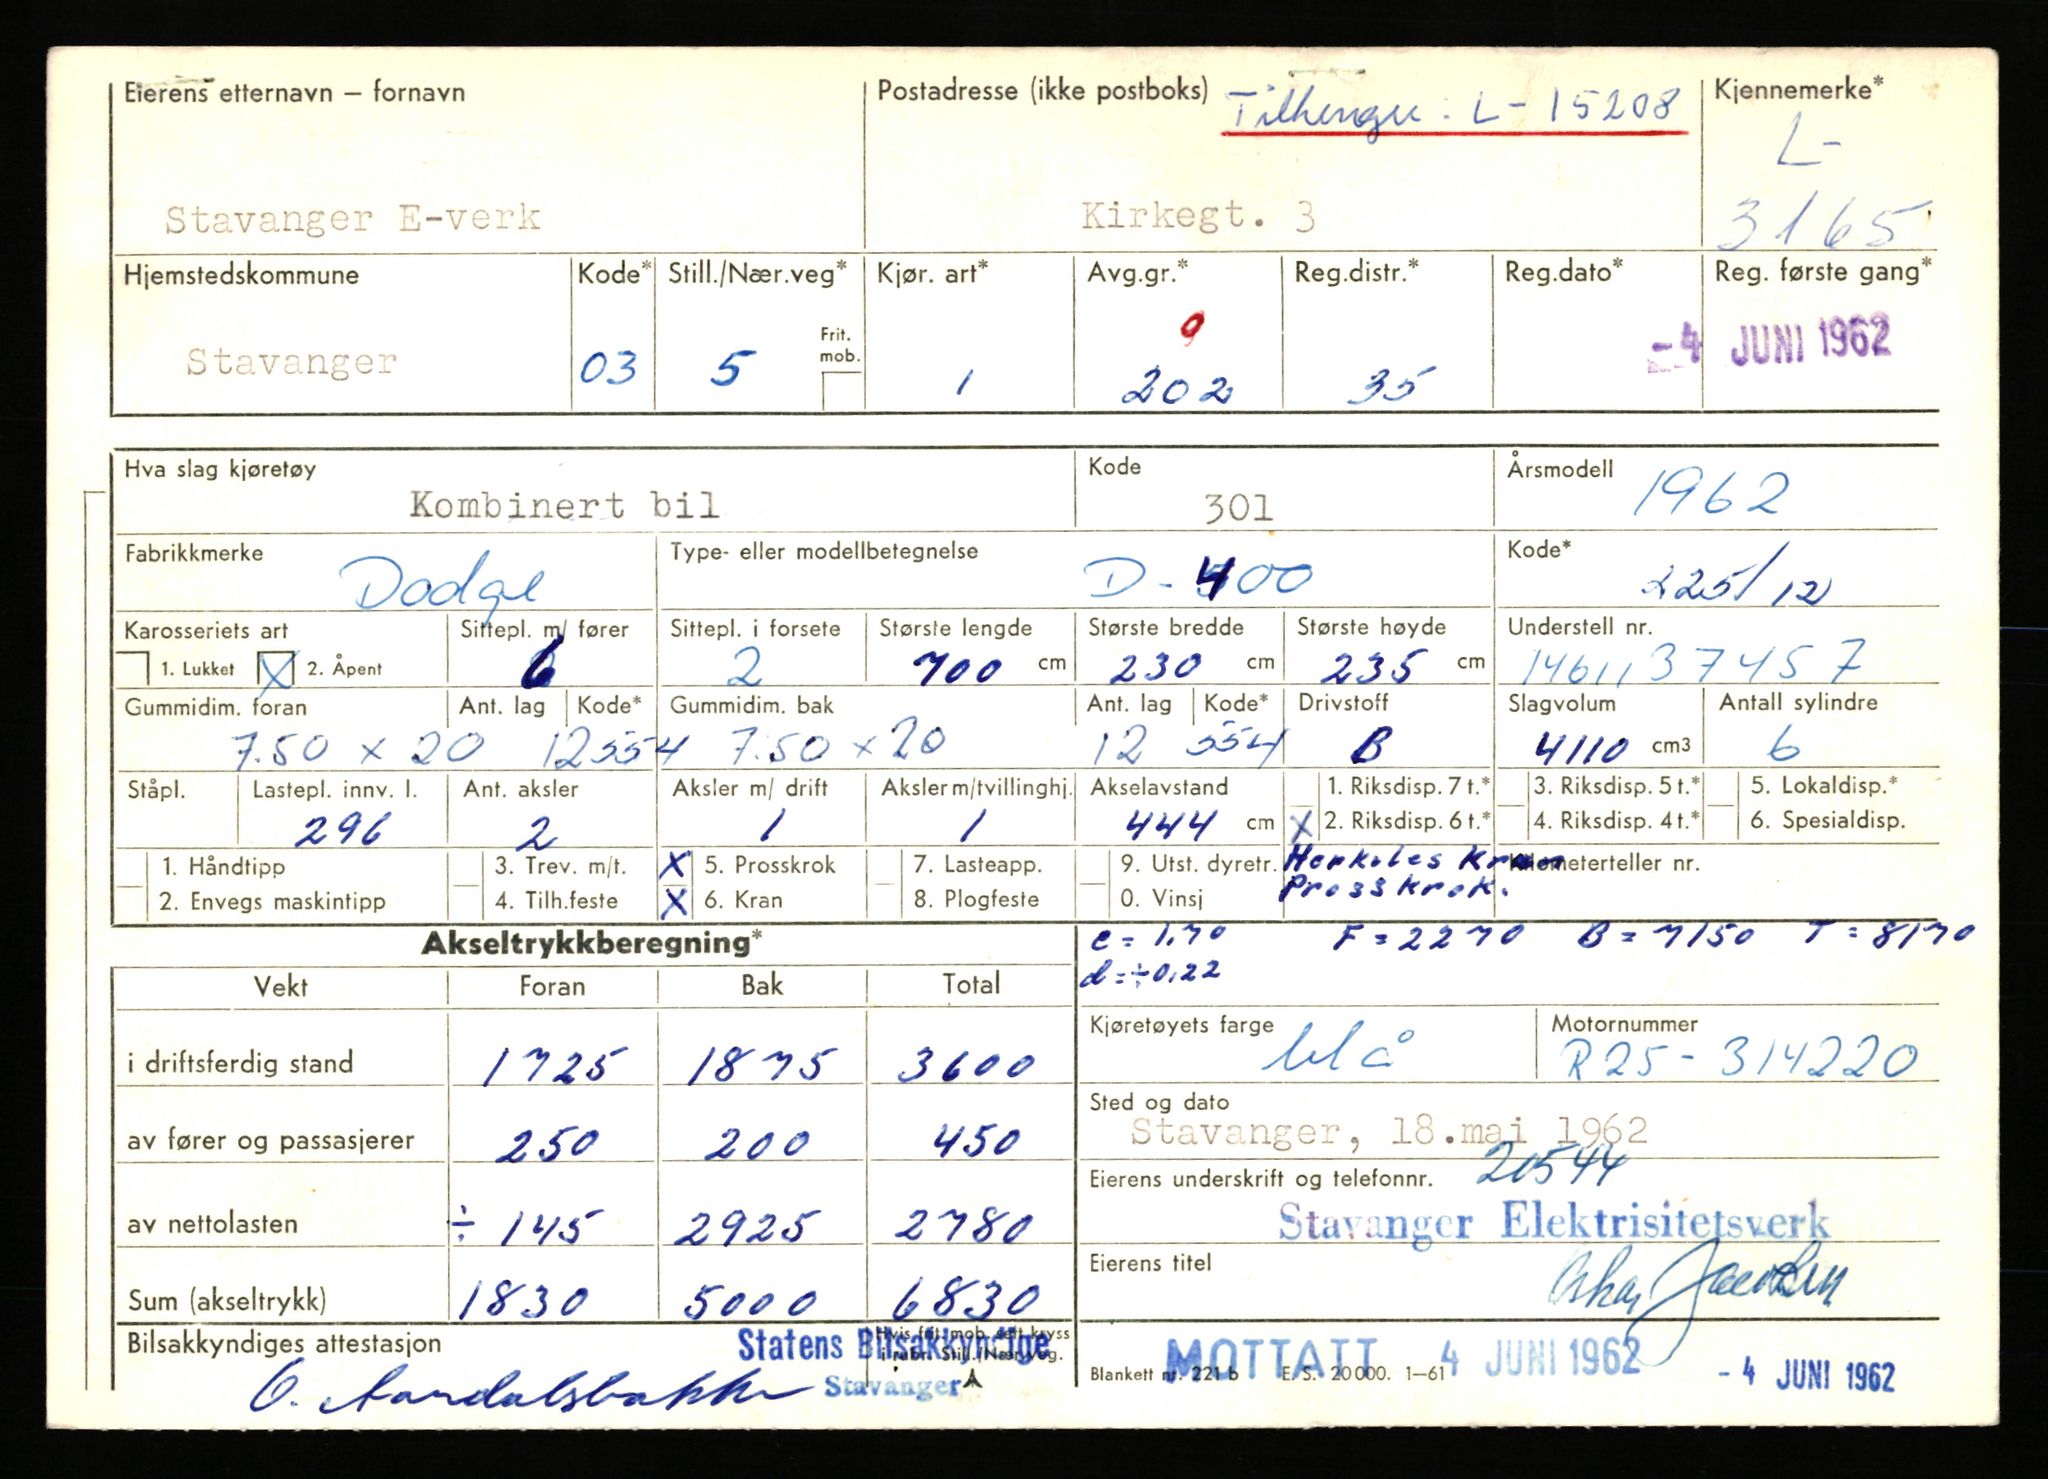 Eierens etternavn – fornavn Postadresse (ikke postboks) Tilhenger: L-15208 Kjennemerke*
L-
Stavanger E-verk Kirkegt. 3 3165
Hjemstedskommune Kode* Still./Nær.veg* Kjør. art* Avg.gr.* Reg.distr.* Reg.dato* Reg. første gang*
9
Frit. mob.
Stavanger 03 5 1 202 35 -4 JUNI 1962
Hva slag kjøretøy Kode Årsmodell
Kombinert bil 301 1962
Fabrikkmerke Type- eller modellbetegnelse Kode*
Dodge D-400 225/12
Karosseriets art Sittepl. m/ fører Sittepl. i forsete Største lengde Største bredde Største høyde Understell nr.
1. Lukket X 2. Åpent 6 2 700 cm 230 cm 235 cm 1461137457
Gummidim. foran Ant. lag Kode* Gummidim. bak Ant. lag Kode* Drivstoff Slagvolum Antall sylindre
7.50 x 20 12 554 7.50 x 20 12 554 B 4110 cm3 6
Ståpl. Lastepl. innv. l. Ant. aksler Aksler m/ drift Aksler m/tvillinghj. Akselavstand 1. Riksdisp. 7 t.* 3. Riksdisp. 5 t.* 5. Lokaldisp.*
296 2 1 1 444 cm X 2. Riksdisp. 6 t.* 4. Riksdisp. 4 t.* 6. Spesialdisp.
1. Håndtipp 3. Trev. m/t. X 5. Prosskrok 7. Lasteapp. 9. Utst. dyretr. Herkules Kran Kilometerteller nr.
2. Envegs maskintipp 4. Tilh.feste X 6. Kran 8. Plogfeste 0. Vinsj Prosskrok.
Akseltrykkberegning* c = 1.70 F = 2270 B = 7150 T = 8170
d = ÷0,22
Vekt Foran Bak Total
Kjøretøyets farge Motornummer
i driftsferdig stand 1725 1875 3600 blå R25-314220
Sted og dato
av fører og passasjerer 250 200 450 Stavanger, 18.mai 1962
Eierens underskrift og telefonnr. 20544
av nettolasten ÷ 145 2925 2780 Stavanger Elektrisitetsverk
Eierens titel
Sum (akseltrykk) 1830 5000 6830
Bilsakkyndiges attestasjon Statens Bilsakkyndige Hvis frit. mob. sett kryss
i rubr. Still./Nær.veg.
Stavanger
Blankett nr. 221 b E. S. 20 000. 1–61 MOTTATT 4 JUNI 1962 -4 JUNI 1962